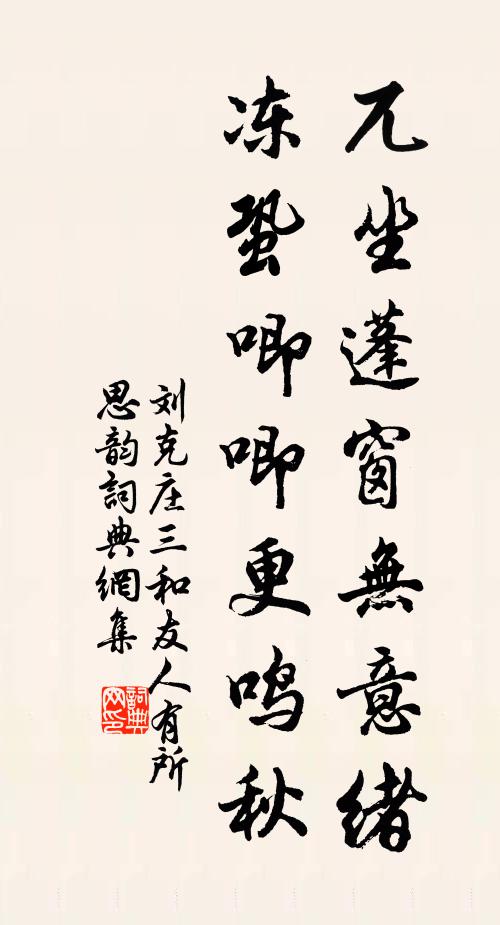 兀坐蓬窗無意緒
冻蛩唧唧更鸣秋
刘克庄三和友人有所
思韵詞典網集
詞典
网印